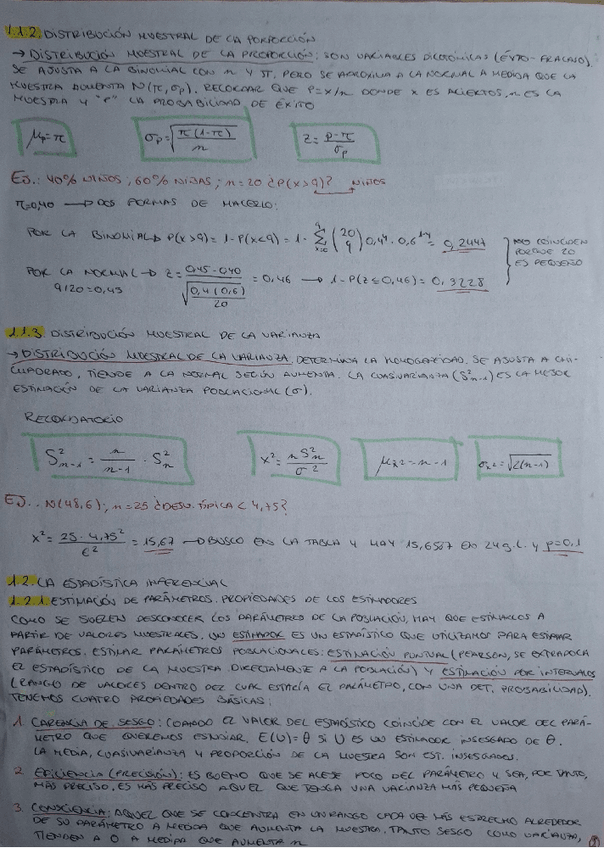 1.1.2. DISTRIBUCIÓN MUESTRAL DE LA PORPORCIÓN
→ DISTRIBUCIÓN MUESTRAL DE LA PROPORCIÓN: SON VARIABLES DICOTÓMICAS (ÉXITO-FRACASO).
SE AJUSTA A LA BINOMIAL CON n Y π, PERO SE APROXIMA A LA NORMAL A MEDIDA QUE LA
MUESTRA AUMENTA N(π, σp). RECORDAR QUE P=x/n DONDE X ES ACIERTOS, n ES LA
MUESTRA Y "P" LA PROBABILIDAD DE ÉXITO
μp=π σp=√(π(1-π)/n) z=(P-π)/σp
EJ.: 40% NIÑOS, 60% NIÑAS; n=20 ¿P(x>9)? NIÑOS
π=0,40 → DOS FORMAS DE HACERLO:
POR LA BINOMIAL → P(x>9)=1-P(x<9)=1- Σ (20 9) 0,4 · 0,6 = 0,2447
NO COINCIDEN
PORQUE 20
ES PEQUEÑO
POR LA NORMAL → z= (0,45-0,40)/√(0,4(0,6)/20) = 0,46 → 1-P(z≤0,46)=0,3228
9/20=0,45
1.1.3 DISTRIBUCIÓN MUESTRAL DE LA VARIANZA
→ DISTRIBUCIÓN MUESTRAL DE LA VARIANZA. DETERMINA LA HOMOGENEIDAD. SE AJUSTA A CHI-
CUADRADO, TIENDE A LA NORMAL SEGÚN AUMENTA. LA CUASIVARIANZA (S²n-1) ES LA MEJOR
ESTIMACIÓN DE LA VARIANZA POBLACIONAL (σ).
RECORDATORIO
S²n-1 = n/(n-1) · S²n x²= nS²n/σ² μx²=n-1 σx²=√(2(n-1))
EJ.. N(48,6); n=25 ¿DESV. TÍPICA < 4,75?
x²= 25·4,75²/6² = 15,67 → BUSCO EN LA TABLA Y HAY 15,6587 EN 24 g.l. Y p=0,1
1.2. LA ESTADÍSTICA INFERENCIAL
1.2.1. ESTIMACIÓN DE PARÁMETROS. PROPIEDADES DE LOS ESTIMADORES
COMO SE SUELEN DESCONOCER LOS PARÁMETROS DE LA POBLACIÓN, HAY QUE ESTIMARLOS A
PARTIR DE VALORES MUESTRALES. UN ESTIMADOR ES UN ESTADÍSTICO QUE UTILIZAMOS PARA ESTIMAR
PARÁMETROS. ESTIMAR PARÁMETROS POBLACIONALES: ESTIMACIÓN PUNTUAL (PEARSON, SE EXTRAPOLA
EL ESTADÍSTICO DE LA MUESTRA DIRECTAMENTE A LA POBLACIÓN) Y ESTIMACIÓN POR INTERVALOS
(RANGO DE VALORES DENTRO DEL CUAL ESTARÍA EL PARÁMETRO, CON UNA DET. PROBABILIDAD).
TENEMOS CUATRO PROPIEDADES BÁSICAS:
1. CARENCIA DE SESGO: CUANDO EL VALOR DEL ESTADÍSTICO COINCIDE CON EL VALOR DEL PARÁ-
METRO QUE QUEREMOS ESTUDIAR, E(U)=θ SI U ES UN ESTIMADOR INSESGADO DE θ.
LA MEDIA, CUASIVARIANZA Y PROPORCIÓN DE LA MUESTRA SON EST. INSESGADOS.
2. EFICIENCIA (PRECISIÓN): ES BUENO QUE SE ALEJE POCO DEL PARÁMETRO Y SEA, POR TANTO,
MÁS PRECISO. ES MÁS PRECISO AQUEL QUE TENGA UNA VARIANZA MÁS PEQUEÑA
3. CONSCIENCIA: AQUEL QUE SE CONCENTRA EN UN RANGO CADA VEZ MÁS ESTRECHO ALREDEDOR
DE SU PARÁMETRO A MEDIDA QUE AUMENTA LA MUESTRA. TANTO SESGO COMO VARIANZA,
TIENDEN A 0 A MEDIDA QUE AUMENTA n